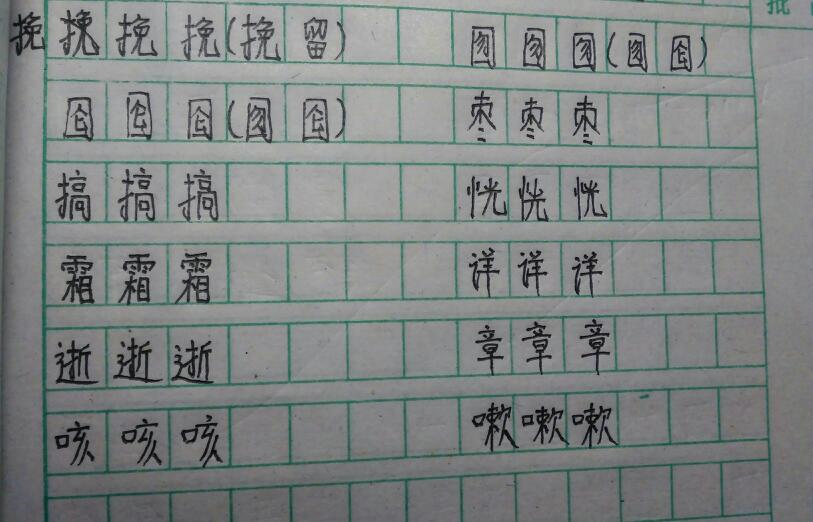 批
挽 挽 挽 挽(挽 留) 囫 囫 囫(囫 囵)
囵 囵 囵(囫 囵) 枣 枣 枣
搞 搞 搞 恍 恍 恍
霜 霜 霜 详 详 详
逝 逝 逝 章 章 章
咳 咳 咳 嗽 嗽 嗽